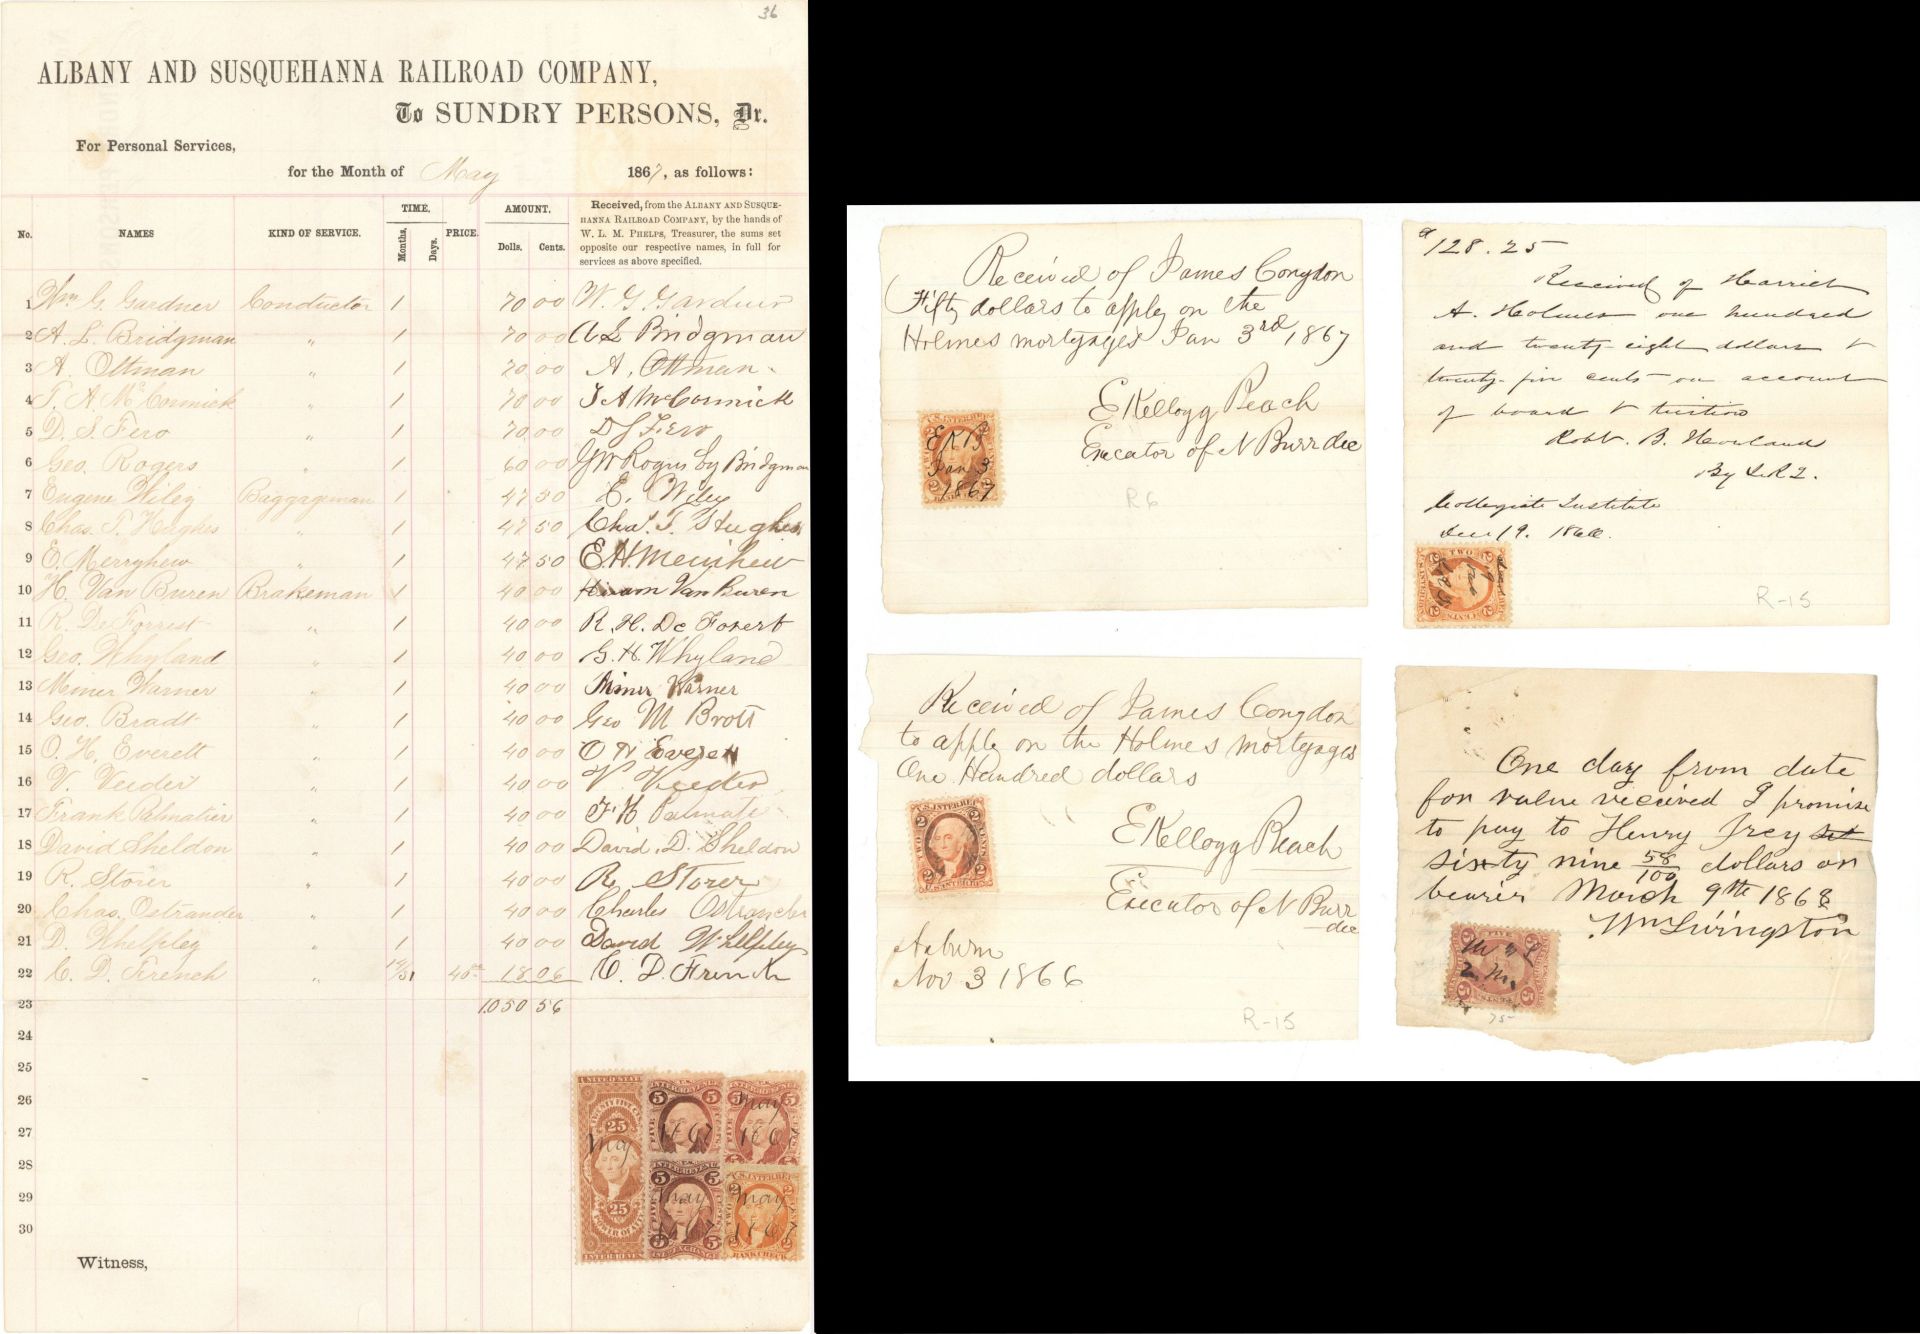 36
ALBANY AND SUSQUEHANNA RAILROAD COMPANY,
To SUNDRY PERSONS, Dr.
For Personal Services,
for the Month of May 1867, as follows:
No. NAMES KIND OF SERVICE. TIME. Months. Days. PRICE. AMOUNT. Dolls. Cents.
Received, from the ALBANY AND SUSQUE-
HANNA RAILROAD COMPANY, by the hands of
W. L. M. PHELPS, Treasurer, the sums set
opposite our respective names, in full for
services as above specified.
1 Wm G. Gardner Conductor 1 70 00 W. G. Gardner
2 A. L. Bridgman " 1 70 00 A L Bridgman
3 A. Ottman " 1 70 00 A. Ottman
4 T. A. McCormick " 1 70 00 T A McCormick
5 D. S. Fero " 1 70 00 D S Fero
6 Geo. Rogers " 1 60 00 G W Rogers by Bridgman
7 Eugene Wiley Baggageman 1 47 50 E. Wiley
8 Chas. T. Hughes " 1 47 50 Chas. T. Hughes
9 E. Merryhew " 1 47 50 E. H. Merrihew
10 H. Van Buren Brakeman 1 40 00 Hiram Van Buren
11 R. DeForrest " 1 40 00 R. H. De Forert
12 Geo. Whyland " 1 40 00 G. H. Whyland
13 Miner Warner " 1 40 00 Miner Warner
14 Geo. Bradt " 1 40 00 Geo M Brott
15 O. H. Everett " 1 40 00 O H Everett
16 V. Veeder " 1 40 00 V. Veeder
17 Frank Palmatier " 1 40 00 F H Palmate
18 David Sheldon " 1 40 00 David. D. Sheldon
19 R. Storer " 1 40 00 R. Storer
20 Chas. Ostrander " 1 40 00 Charles Ostrander
21 D. Whelpley " 1 40 00 David Whelpley
22 C. D. French " 14/31 40 18 06 C. D. French
23 1050 56
24
25
26
27
28
29
30
Witness,
UNITED STATES
TWENTY FIVE CENTS
25
May
25
POWER OF ATT'Y
INTER. REVENUE
5 INTER. REVENUE 5
FIVE CENTS
1867
5 INTER. REVENUE 5
FIVE CENTS
May
1867
5 INTER. REVENUE 5
FIVE CENTS
May
1867
5 EXCHANGE 5
U.S. INTER. REV.
2 2
TWO CENTS
May
1867
2 BANK CHECK 2
Received of James Congdon
Fifty dollars to apply on the
Holmes mortgages Jan 3rd, 1867
E Kellogg Beach
Executor of N Burr dec
U.S. INTER. REV.
EKB
Jan 3
1867
R6
$128.25
Received of Harriet
A. Holmes one hundred
and twenty-eight dollars &
twenty-five cents on account
of board & tuition
Robt. B. Howland
By
Collegiate Institute
Dec 19. 1866.
TWO
2 2
R-15
Received of James Congdon
to apply on the Holmes mortgages
One Hundred dollars
U.S. INTER. REV.
2 2
TWO CENTS
2 2
U.S. INTER. REV.
E Kellogg Beach
Executor of N Burr
dec
Auburn
Nov 3 1866
R-15
One day from date
for value received I promise
to pay to Henry Frey
sixty nine 58/100 dollars or
bearer March 9th 1868
Wm Livingston
5 FIVE 5
Wm L
5 CENTS 5
75